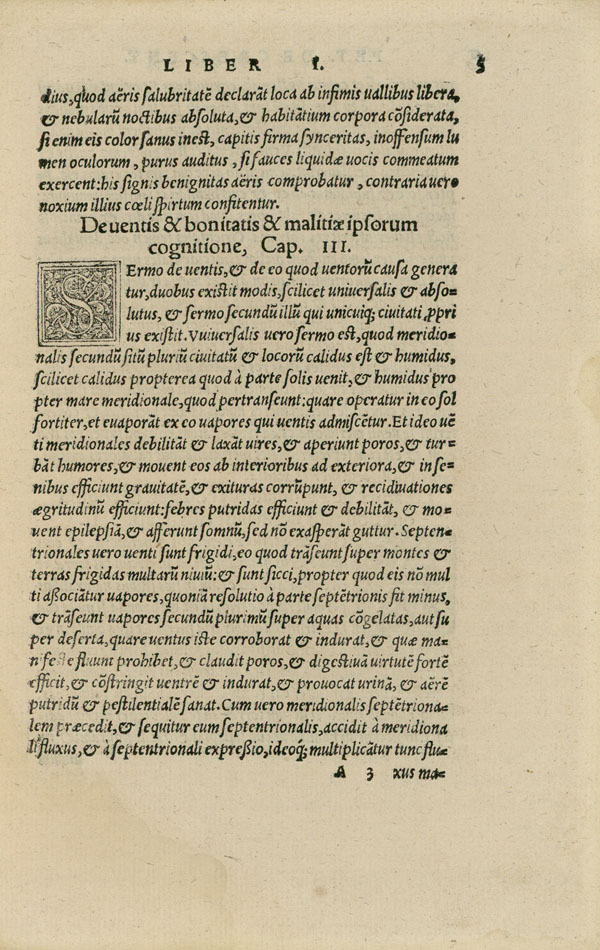 LIBER I. 5
dius, quod aëris salubritatẽ declarãt loca ab infimis uallibus libera,
& nebularũ noctibus absoluta, & habitãtium corpora cõsiderata,
si enim eis color sanus inest, capitis firma synceritas, inoffensum lu
men oculorum, purus auditus, si fauces liquidæ uocis commeatum
exercent: his signis benignitas aëris comprobatur, contraria uero
noxium illius cœli spirtum confitentur.
De uentis & bonitatis & malitiæ ipsorum
cognitione, Cap. III.
SErmo de uentis, & de eo quod uentorũ causa genera
tur, duobus existit modis, scilicet uniuersalis & abso=
lutus, & sermo secundũ illũ qui unicuiq; ciuitati ꝓpri
us existit. Vuiuersalis uero sermo est, quod meridio=
nalis secundũ sitũ pluriũ ciuitatũ & locorũ calidus est & humidus,
scilicet calidus propterea quod à parte solis uenit, & humidus pro
pter mare meridionale, quod pertranseunt: quare operatur in eo sol
fortiter, et euaporãt ex eo uapores qui uentis admiscẽtur. Et ideo uẽ
ti meridionales debilitãt & laxãt uires, & aperiunt poros, & tur=
bãt humores, & mouent eos ab interioribus ad exteriora, & in se=
nibus efficiunt grauitatẽ, & exituras corrũpunt, & recidiuationes
ægritudinũ efficiunt: febres putridas efficiunt & debilitãt, & mo=
uent epilepsiã, & afferunt somnũ, sed nõ exasperãt guttur. Septen=
trionales uero uenti sunt frigidi, eo quod trãseunt super montes &
terras frigidas multarũ niuiũ: & sunt sicci, propter quod eis nõ mul
ti aßociãtur uapores, quoniã resolutio à parte septẽtrionis fit minus,
& trãseunt uapores secundũ plurimũ super aquas cõgelatas, aut su
per deserta, quare uentus iste corroborat & indurat, & quæ ma=
nifeste fluunt prohibet, & claudit poros, & digestiuã uirtutẽ fortẽ
efficit, & cõstringit uentrẽ & indurat, & prouocat urinã, & aërẽ
putridũ & pestilentialẽ sanat. Cum uero meridionalis septẽtriona=
lem præcedit, & sequitur eum septentrionalis, accidit à meridiona
li fluxus, & à septentrionali expreßio, ideoq; multiplicãtur tunc flu=
A 3 xus ma=